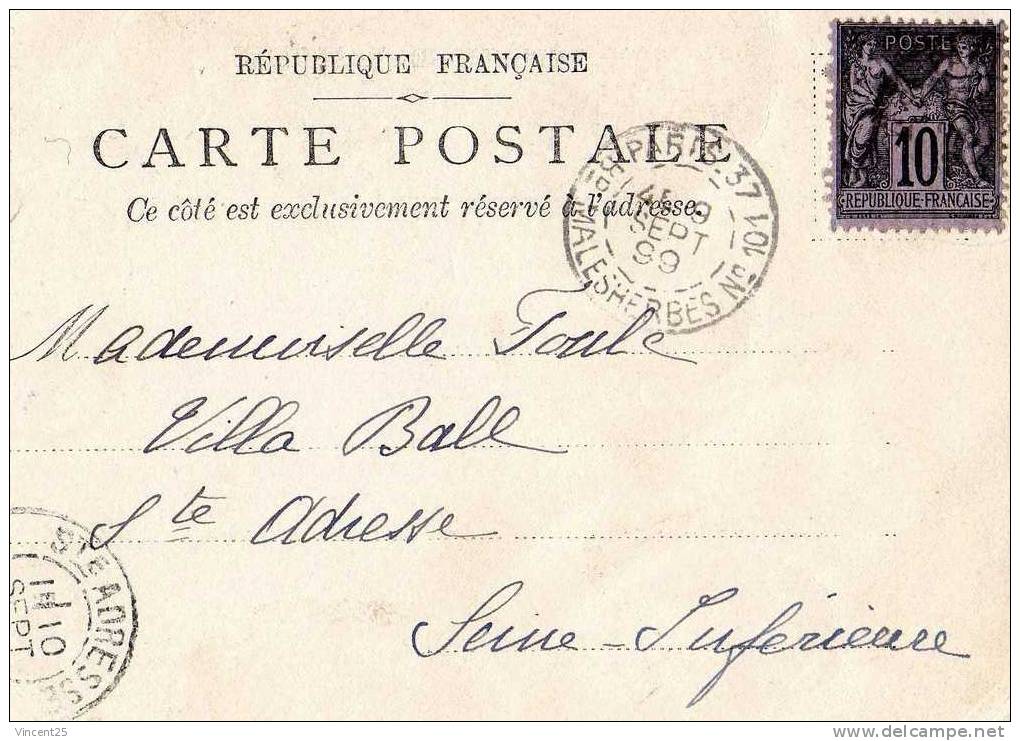 RÉPUBLIQUE FRANÇAISE
CARTE POSTALE
Ce côté est exclusivement réservé à l'adresse.
POSTE
10
RÉPUBLIQUE FRANÇAISE
PARIS 37
9
SEPT
99
Bd MALESHERBES No 101
Mademoiselle Foulc
Villa Ball
Ste Adresse
Seine-Inférieure
STE ADRESSE
10
SEPT
Vincent25